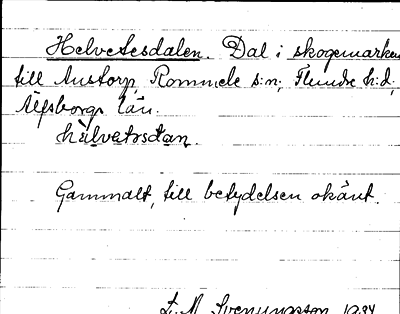 Helvetesdalen. Dal i skogsmarken
till Anstorp, Rommele s:n, Flundre h:d,
Älfsborgs län.
hälvətəsdan.
Gammalt, till betydelsen okänt.
E. M. Svenungsson 1924